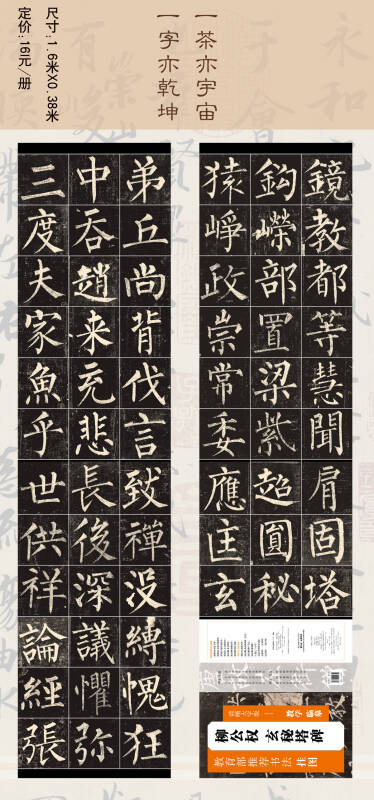 一茶亦宇宙
一字亦乾坤
尺寸:1.6米X0.38米
定价:16元/册
鏡教都等慧聞肩固塔
鈎嶸部置梁紫超圓秘
猿崢政崇常委應匡玄
弟丘尚背伐言致禪没縛愧狂
中吞趙来充悲長後深議懼弥
三度夫家魚乎世供祥論經張
教学 临摹
柳公权 玄秘塔碑
教育部推荐书法 挂图